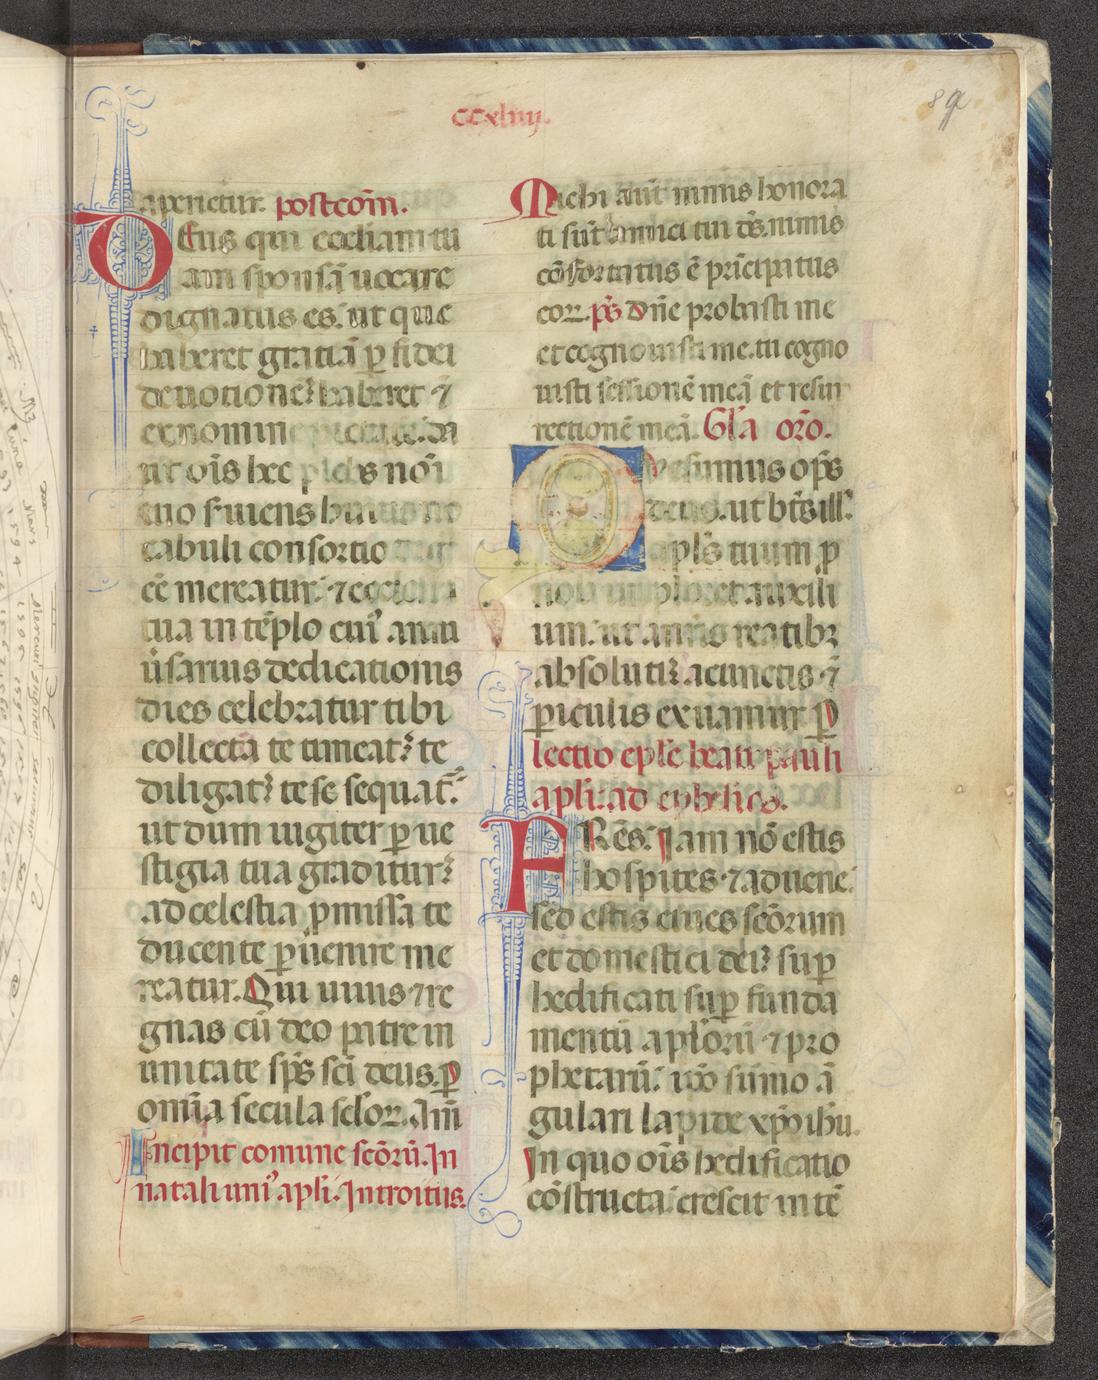 ccxliiij.
89
aperietur. postcōm.
DEus qui eccliam tu
am sponsā uocare
dignatus es. ut que
haberet gratiā ꝑ fidei
deuotionē haberet ⁊
ex nomine pietatem. da
ut oīs hec plebs noī
tuo ſuiens huius uo
cabuli consortio dig
ēe mereatur. ⁊ ecclesia
tua in tēplo cui' anni
ūsarius dedicationis
dies celebratur tibi
collecta te timeat. te
diligat. te sequat.
ut dum iugiter ꝑ ue
stigia tua graditur
ad celestia ꝓmissa te
ducente ꝑuenire me
reatur. Qui uiuis ⁊ re
gnas cū deo patre in
unitate sp̄s sc̄i deus. ꝑ
omīa secula sc̄lor. am̄
Incipit comune sc̄orū. In
natali uni' apl̄i. Introitus.
Michi aut̄ nimis honora
ti sūt amici tui ds̄. nimis
cōfortatus ē prīcipatus
eoꝝ. p̄s dn̄e probasti me
et cognouisti me. tu cogno
uisti sessionē meā et resur
rectionē meā. Gl̄a oro.
Quesumus op̄s
deus. ut bt̄s ill'.
apl̄s tuum ꝑ
nobis imploret auxili
um. ut a nr̄is reatibꝫ
absoluti. a cunctis ⁊
ꝑiculis exuamur ꝑ
lectio epl̄e beati pauli
apl̄i. ad ephesios.
FRēs. Iam nō estis
hospites ⁊ aduene.
sed estis ciues sc̄orum
et domestici dei. suꝑ
hedificati suꝑ funda
mentū apl̄orū ⁊ pro
phetarū. ip̄o sūmo ā
gulari lapide xp̄o ihu.
In quo oīs hedificatio
cōstructa. crescit in tē